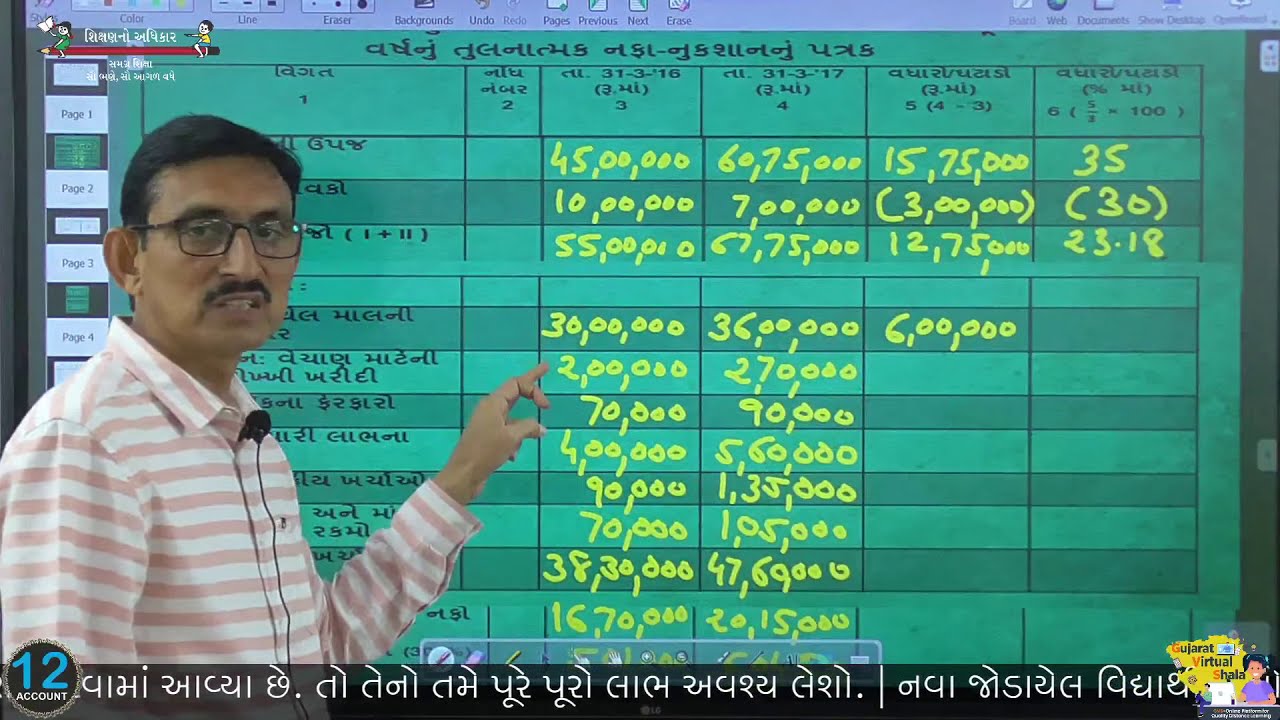 Line
Eraser
Color
Backgrounds
Undo Redo
Pages Previous Next
Erase
Board Web Documents Show Desktop
શિક્ષણનો અધિકાર
સમગ્ર શિક્ષા
સૌ ભણે, સૌ આગળ વધે
વર્ષનું તુલનાત્મક નફા-નુકશાનનું પત્રક
વિગત નોંધ નંબર તા. 31-3-'16 (રૂ.માં) તા. 31-3-'17 (રૂ.માં) વધારો/ઘટાડો (રૂ.માં) વધારો/ઘટાડો (% માં)
1 2 3 4 5 (4 - 3) 6 ( 5/3 × 100 )
Page 1
Page 2
Page 3
Page 4
ઉપજ 45,00,000 60,75,000 15,75,000 35
10,00,000 7,00,000 (3,00,000) (30)
( I + II ) 55,00,000 67,75,000 12,75,000 23.18
માલની 30,00,000 36,00,000 6,00,000
વેચાણ માટેની
ખરીદી 2,00,000 2,70,000
ફેરફારો 70,000 90,000
લાભના 4,00,000 5,60,000
ખર્ચાઓ 90,000 1,35,000
અને
રકમો 70,000 1,05,000
38,30,000 47,60,000
નફો 16,70,000 20,15,000
12
ACCOUNT
વામાં આવ્યા છે. તો તેનો તમે પૂરે પૂરો લાભ અવશ્ય લેશો. | નવા જોડાયેલ
Gujarat
Virtual
Shala
LG